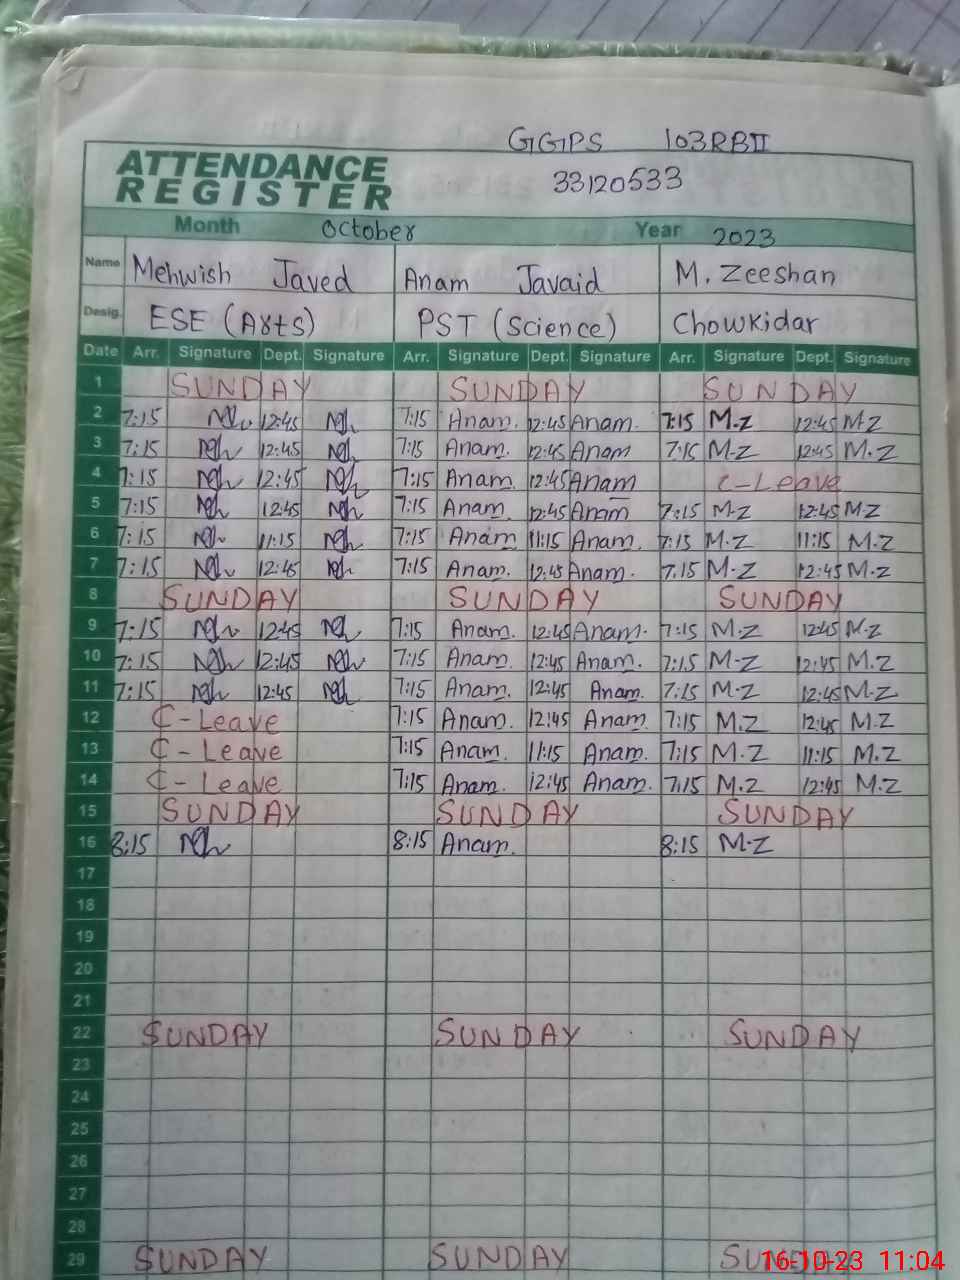 GGPS 103RBII
ATTENDANCE
REGISTER
33120533
Month October Year 2023
Name Mehwish Javed Anam Javaid M. Zeeshan
Desig. ESE (Arts) PST (Science) Chowkidar
Date Arr. Signature Dept. Signature Arr. Signature Dept. Signature Arr. Signature Dept. Signature
1 SUNDAY SUNDAY SUNDAY
2 7:15 12:45 7:15 Anam. 12:45 Anam. 7:15 M.Z 12:45 M.Z
3 7:15 12:45 7:15 Anam. 12:45 Anam 7:15 M.Z 12:45 M.Z
4 7:15 12:45 7:15 Anam. 12:45 Anam C-Leave
5 7:15 12:45 7:15 Anam. 12:45 Anam 7:15 M.Z 12:45 M.Z
6 7:15 11:15 7:15 Anam 11:15 Anam. 7:15 M.Z 11:15 M.Z
7 7:15 12:45 7:15 Anam. 12:45 Anam. 7:15 M.Z 12:45 M.Z
8 SUNDAY SUNDAY SUNDAY
9 7:15 12:45 7:15 Anam. 12:45 Anam. 7:15 M.Z 12:45 M.Z
10 7:15 12:45 7:15 Anam. 12:45 Anam. 7:15 M-Z 12:45 M.Z
11 7:15 12:45 7:15 Anam. 12:45 Anam. 7:15 M.Z 12:45 M.Z
12 C-Leave 7:15 Anam. 12:45 Anam. 7:15 M.Z 12:45 M.Z
13 C-Leave 7:15 Anam. 11:15 Anam. 7:15 M.Z 11:15 M.Z
14 C-Leave 7:15 Anam. 12:45 Anam. 7:15 M.Z 12:45 M.Z
15 SUNDAY SUNDAY SUNDAY
16 8:15 8:15 Anam. 8:15 M.Z
17
18
19
20
21
22 SUNDAY SUNDAY SUNDAY
23
24
25
26
27
28
29 SUNDAY SUNDAY SUNDAY
16-10-23 11:04